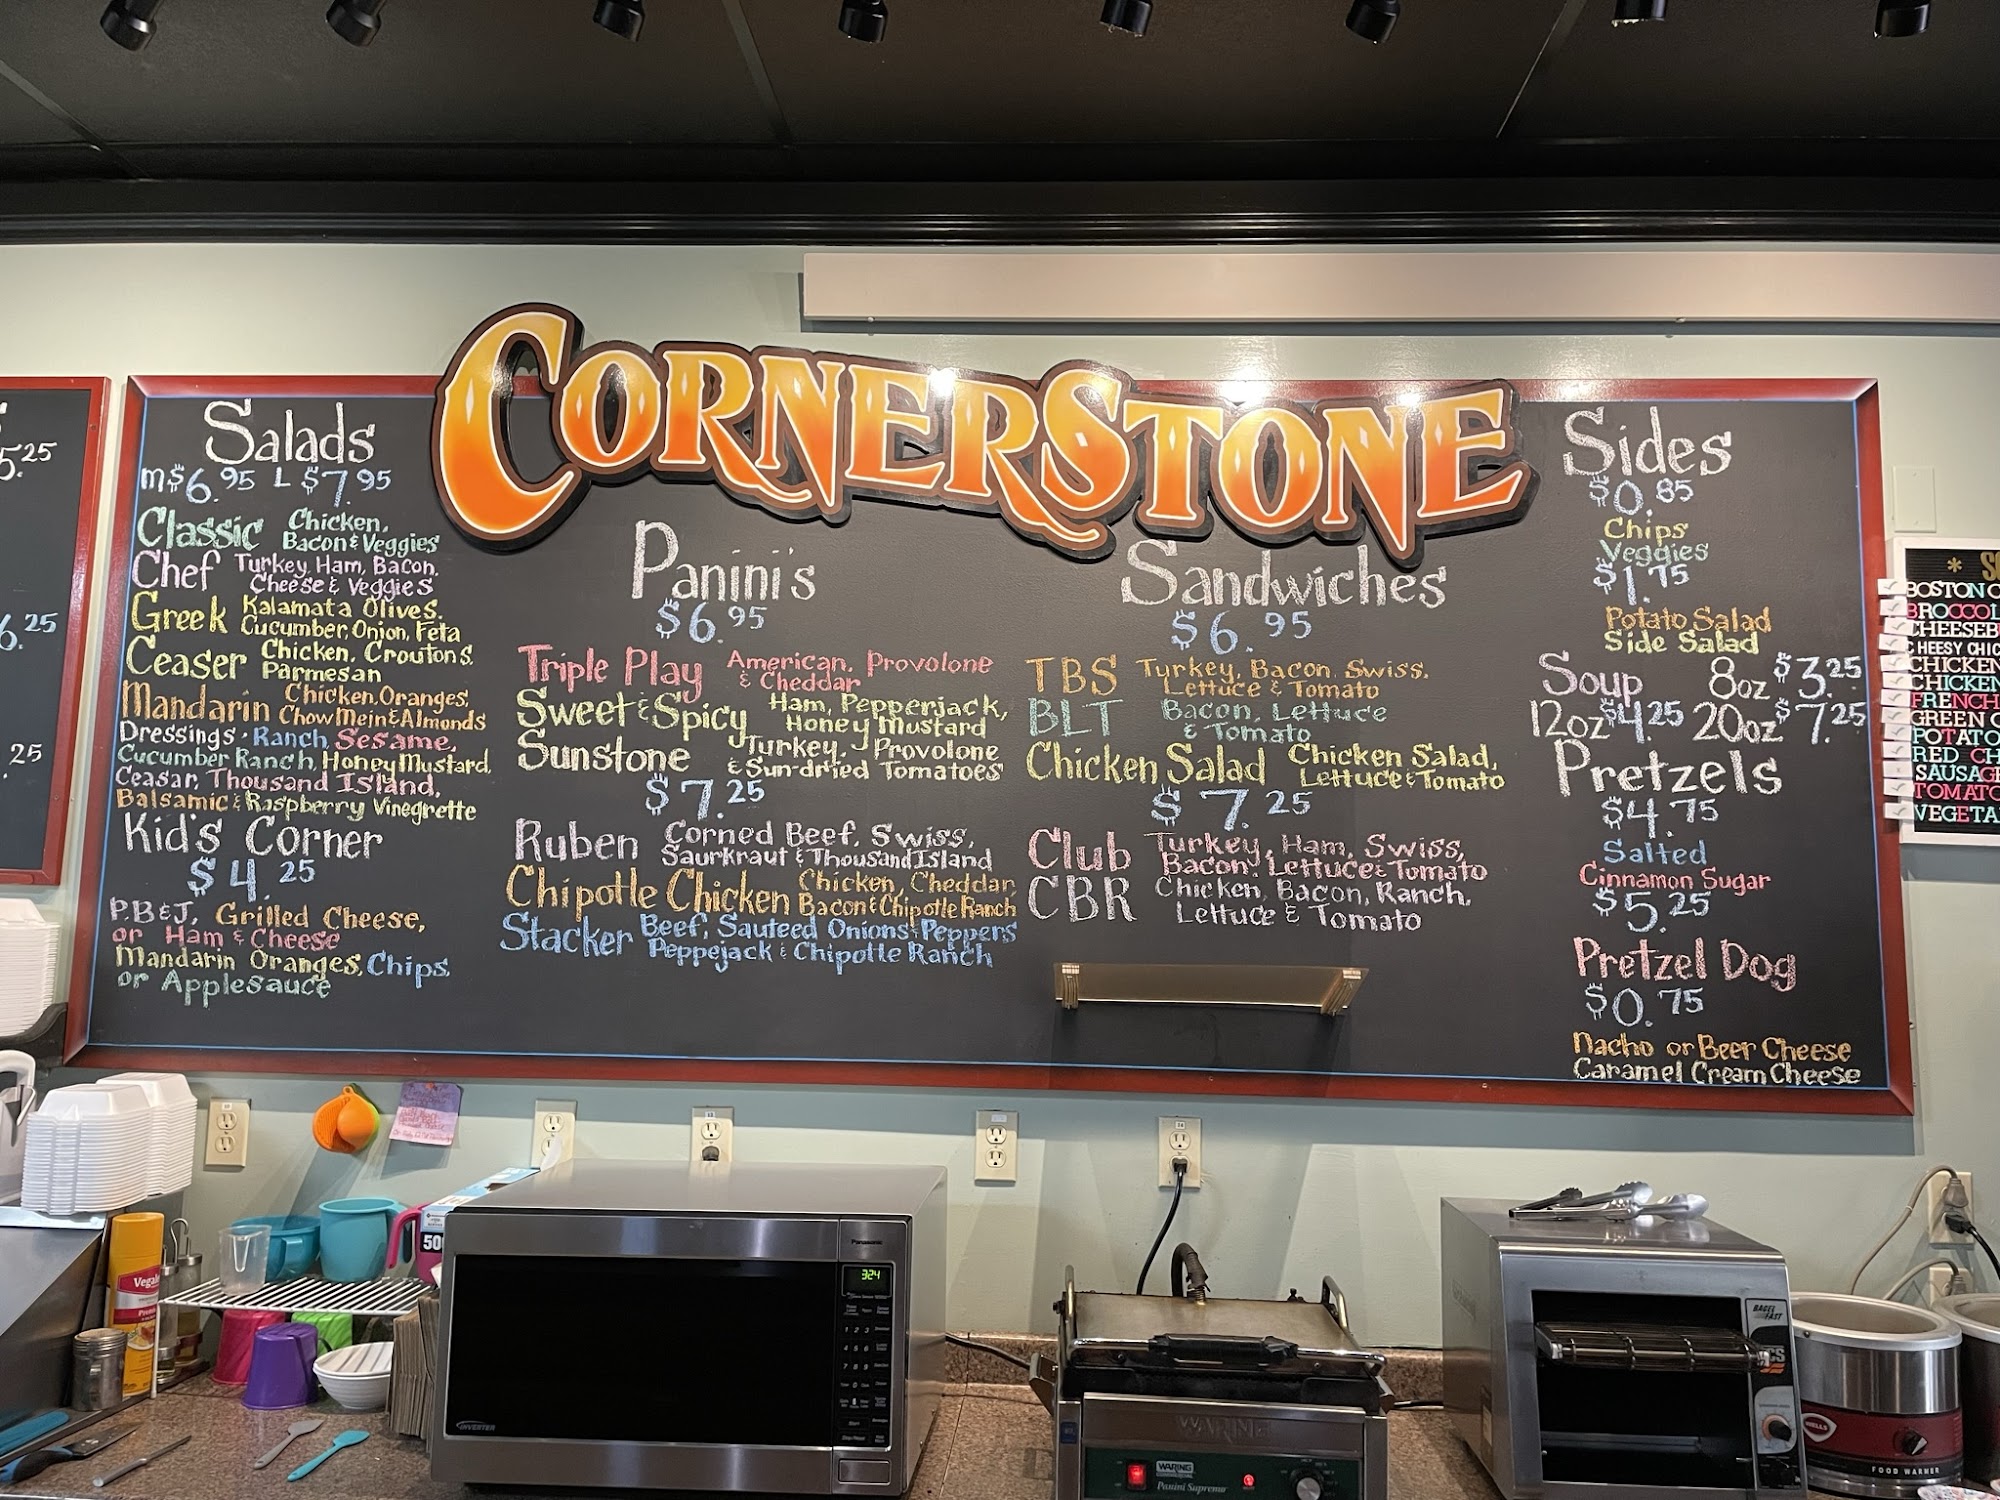 CORNERSTONE
5.25
6.25
.25
Salads
M $6.95 L $7.95
Classic Chicken,
Bacon & Veggies
Chef Turkey, Ham, Bacon,
Cheese & Veggies
Greek Kalamata Olives,
Cucumber, Onion, Feta
Ceaser Chicken, Croutons,
Parmesan
Mandarin Chicken, Oranges,
Chow Mein & Almonds
Dressings · Ranch, Sesame,
Cucumber Ranch, Honey Mustard,
Ceasar, Thousand Island,
Balsamic & Raspberry Vinegrette
Kid's Corner
$4.25
P.B & J, Grilled Cheese,
or Ham & Cheese
Mandarin Oranges, Chips,
or Applesauce
Panini's
$6.95
Triple Play American, Provolone
& Cheddar
Sweet & Spicy Ham, Pepperjack,
Honey Mustard
Sunstone Turkey, Provolone
& Sun-dried Tomatoes
$7.25
Ruben Corned Beef, Swiss,
Saurkraut & Thousand Island
Chipotle Chicken Chicken, Cheddar,
Bacon & Chipotle Ranch
Stacker Beef, Sauteed Onions & Peppers
Peppejack & Chipotle Ranch
Sandwiches
$6.95
TBS Turkey, Bacon, Swiss,
Lettuce & Tomato
BLT Bacon, Lettuce
& Tomato
Chicken Salad Chicken Salad,
Lettuce & Tomato
$7.25
Club Turkey, Ham, Swiss,
Bacon, Lettuce & Tomato
CBR Chicken, Bacon, Ranch,
Lettuce & Tomato
Sides
$0.85
Chips
Veggies
$1.75
Potato Salad
Side Salad
Soup 8oz $3.25
12oz $4.25 20oz $7.25
Pretzels
$4.75
Salted
Cinnamon Sugar
$5.25
Pretzel Dog
$0.75
Nacho or Beer Cheese
Caramel Cream Cheese
BOSTON C
BROCCOL
CHEESEB
CHEESY CHIC
CHICKEN
CHICKEN
FRENCH
GREEN C
POTATO
RED CH
SAUSAGE
TOMATO
VEGETA
Panasonic
3:24
INVERTER
WARING
WARING
Panini Supremo
BAGEL
FAST
WELLS
FOOD WARMER